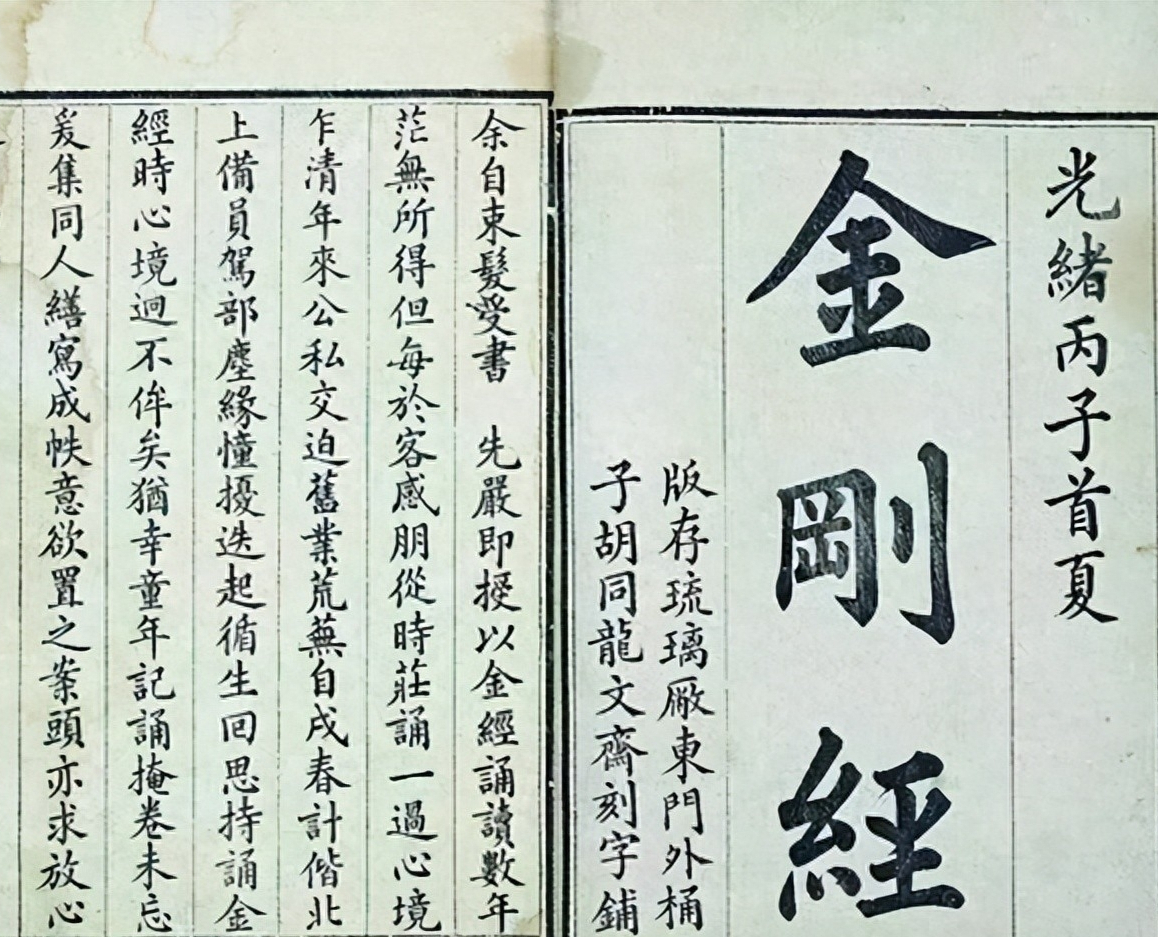 光緒丙子首夏
金剛經
版存琉璃厰東門外桶
子胡同龍文齋刻字鋪
余自束髮受書　先嚴即授以金經誦讀數年
茫無所得但每於客感朋從時莊誦一過心境
乍清年來公私交迫舊業荒蕪自戌春計偕北
上備員駕部塵緣憧擾迭起循生回思持誦金
經時心境迥不侔矣猶幸童年記誦掩卷未忘
爰集同人繕寫成帙意欲置之案頭亦求放心